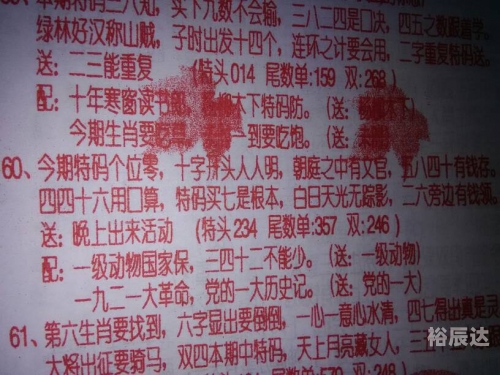 本期特码三八知，买下九数不会输，三八二四是口决，四五之数跟
绿林好汉称山贼，子时出发十四个，连环之计要会用，二字重复特码送。
送：二三能重复 (特头014 尾数单:159 双:268)
配：十年寒窗读书 木下特码防。(送：
今期生肖要吃 一到要吃饱。(送：
60、今期特码个位零，十字拼头人人明，朝庭之中有文官，五八四十有钱存。
四四十六用口算，特码买七是根本，白日天光无踪影，二六旁边有钱领。
送：晚上出来活动 (特头234 尾数单:357 双:246)
配：一级动物国家保，三四十二不能少。(送：一级动物)
一九二一大革命，党的一大历史记。(送：党的一大)
61、第六生肖要找到，六字显出要倒倒，一心一意心水清，四七得出真是
大将出征要骑马，双四本期中特码，天上月亮藏女人，三五
裕辰达